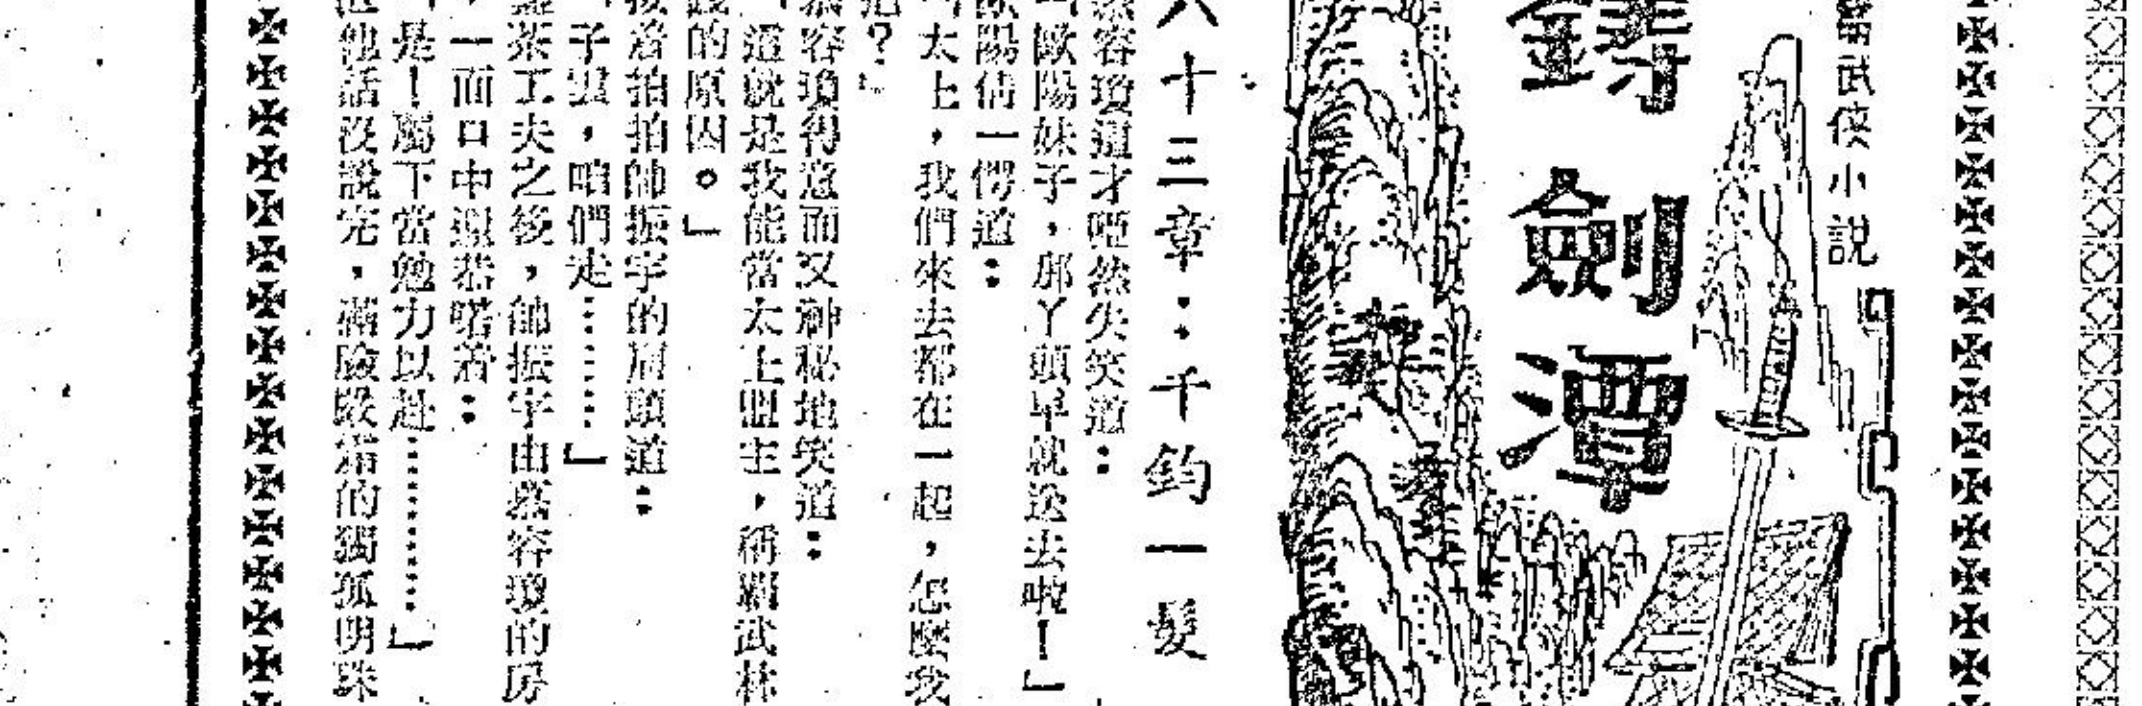 武俠小說
鑄劍潭
十三章：千鈞一髮
容瓊這才啞然失笑道：
歐陽妹子，那丫頭早就送去啦！」
歐陽倩一愕道：
太上，我們來去都在一起，怎麼我
？」
容瓊得意而又神秘地笑道：
「這就是我能當太上盟主，稱霸武林
的原因。」
接着拍拍帥振宇的肩頭道：
「子雲，咱們走………」
盞茶工夫之後，帥振宇由慕容瓊的房
，一面口中還恭喏着：
「是！屬下當勉力以赴…………」
他話沒說完，滿臉嚴霜的獨孤明珠